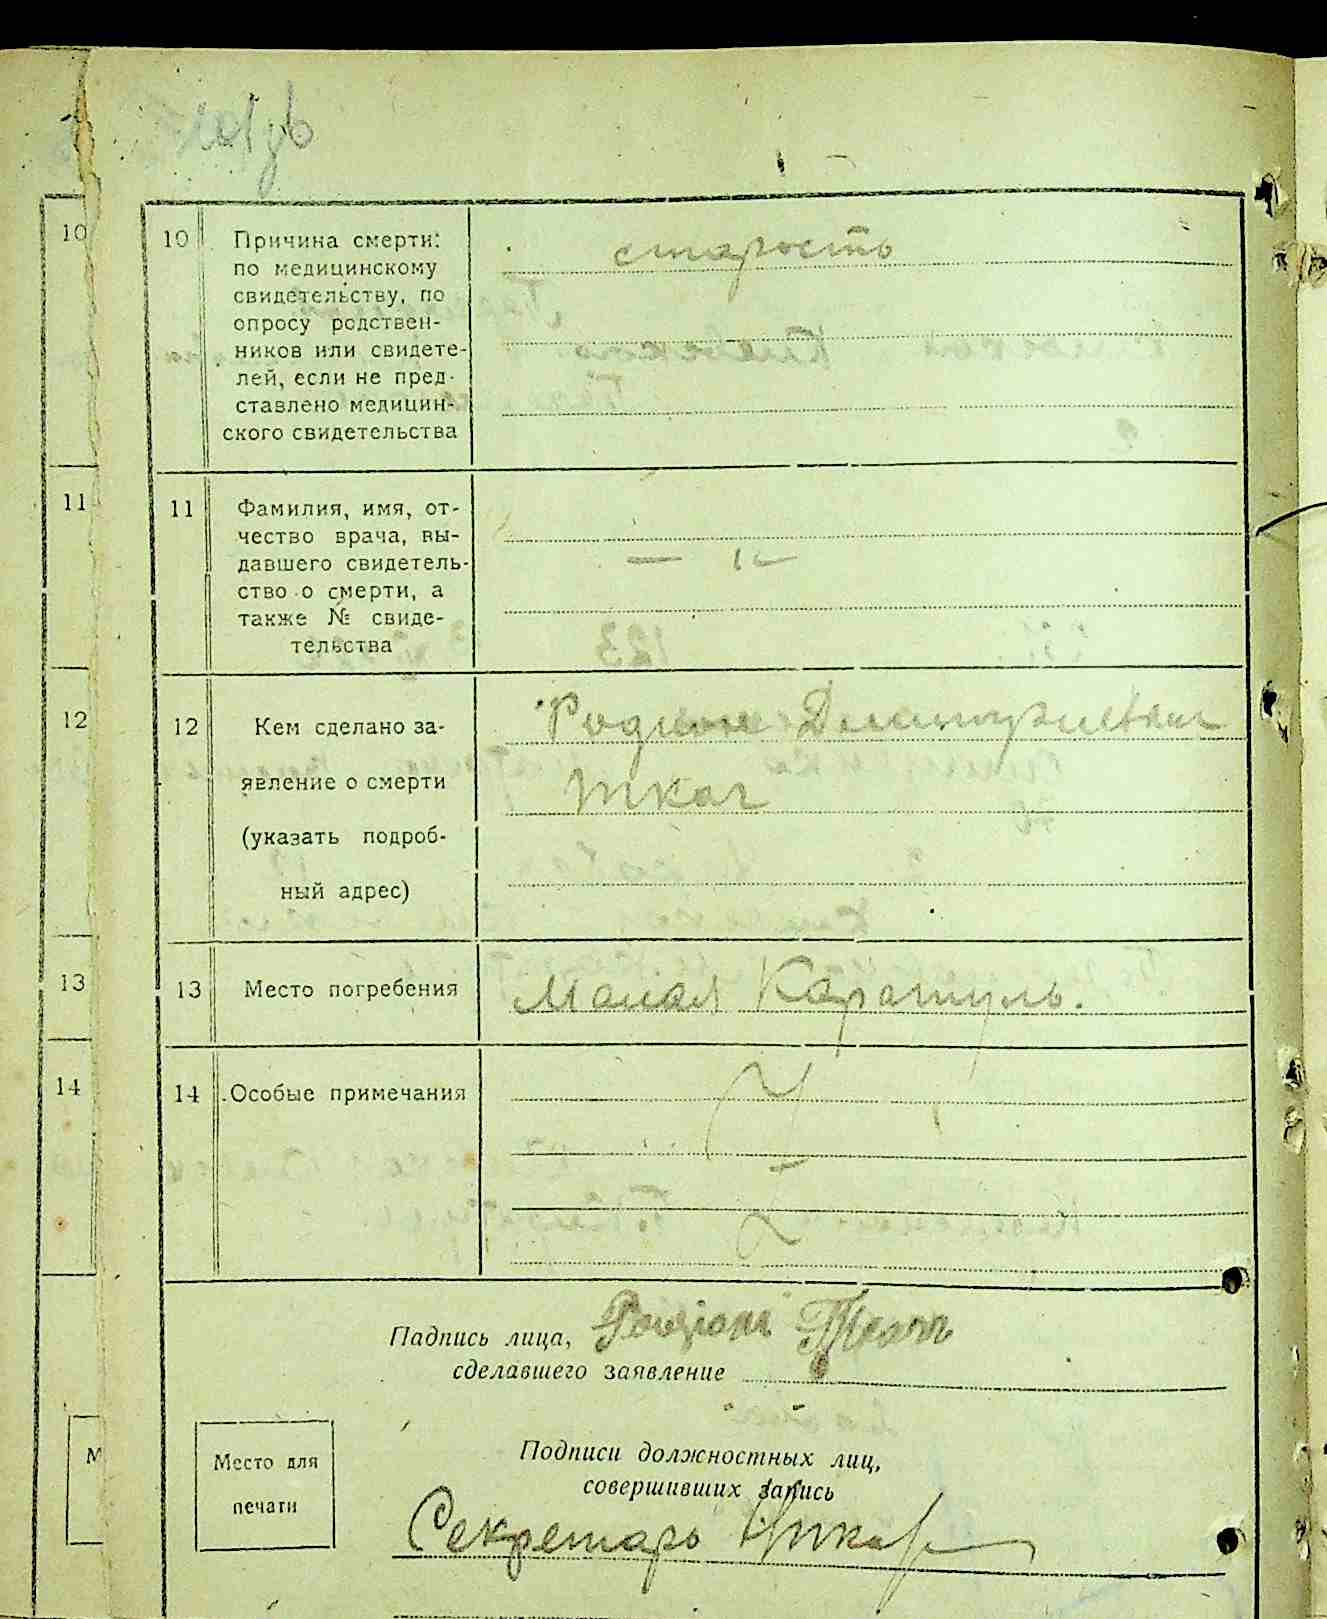 10
10 Причина смерти: старость
по медицинскому
свидетельству, по
опросу родствен-
ников или свидете-
лей, если не пред-
ставлено медицин-
ского свидетельства
11
11 Фамилия, имя, от-
чество врача, вы-
давшего свидетель-
ство о смерти, а
также № свиде-
тельства
12
12 Кем сделано за- Родион
явление о смерти Ткач
(указать подроб-
ный адрес)
13
13 Место погребения Малая Каратуль.
14
14 Особые примечания
Падпись лица, Ткач
сделавшего заявление
М
Место для
печати
Подписи должностных лиц,
совершивших запись
Секретарь